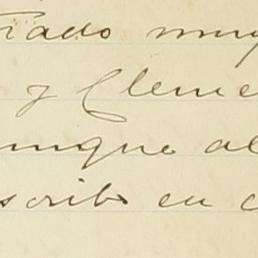 riado muy
y Cleme
unque al
scribo en c